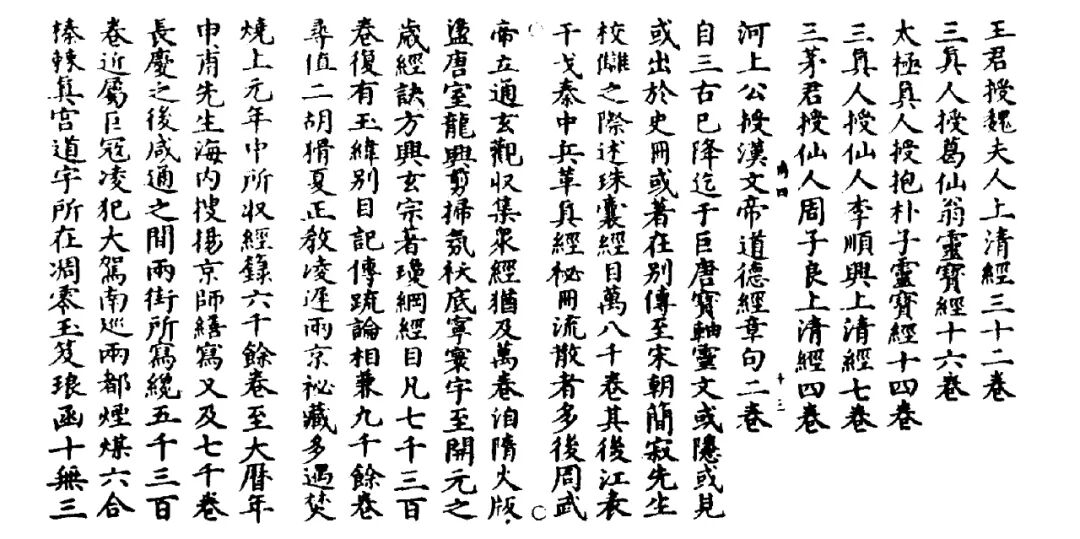 王君授魏夫人上清經三十二卷
三真人授葛仙翁靈寶經十六卷
太極真人授抱朴子靈寶經十四卷
三真人授仙人李順興上清經七卷
三茅君授仙人周子良上清經四卷
河上公授漢文帝道德經章句二卷
自三古已降迄于巨唐寶軸靈文或隱或見
或出於史冊或著在別傳至宋朝簡寂先生
校讎之際述珠囊經目萬八千卷其後江表
干戈秦中兵革真經秘冊流散者多後周武
帝立通玄觀收集眾經猶及萬卷洎隋火版
蕩唐室龍興剪掃氛祅底寧寰宇至開元之
歲經訣方興玄宗著瓊綱經目凡七千三百
卷復有玉緯別目記傳疏論相兼九千餘卷
尋值二胡猾夏正教凌遲兩京祕藏多遇焚
燒上元年中所收經籙六千餘卷至大曆年
申甫先生海內搜揚京師繕寫又及七千卷
長慶之後咸通之間兩街所寫纔五千三百
卷近屬巨寇凌犯大駕南巡兩都煙煤六合
榛棘真宮道宇所在凋零玉笈琅函十無三
十三